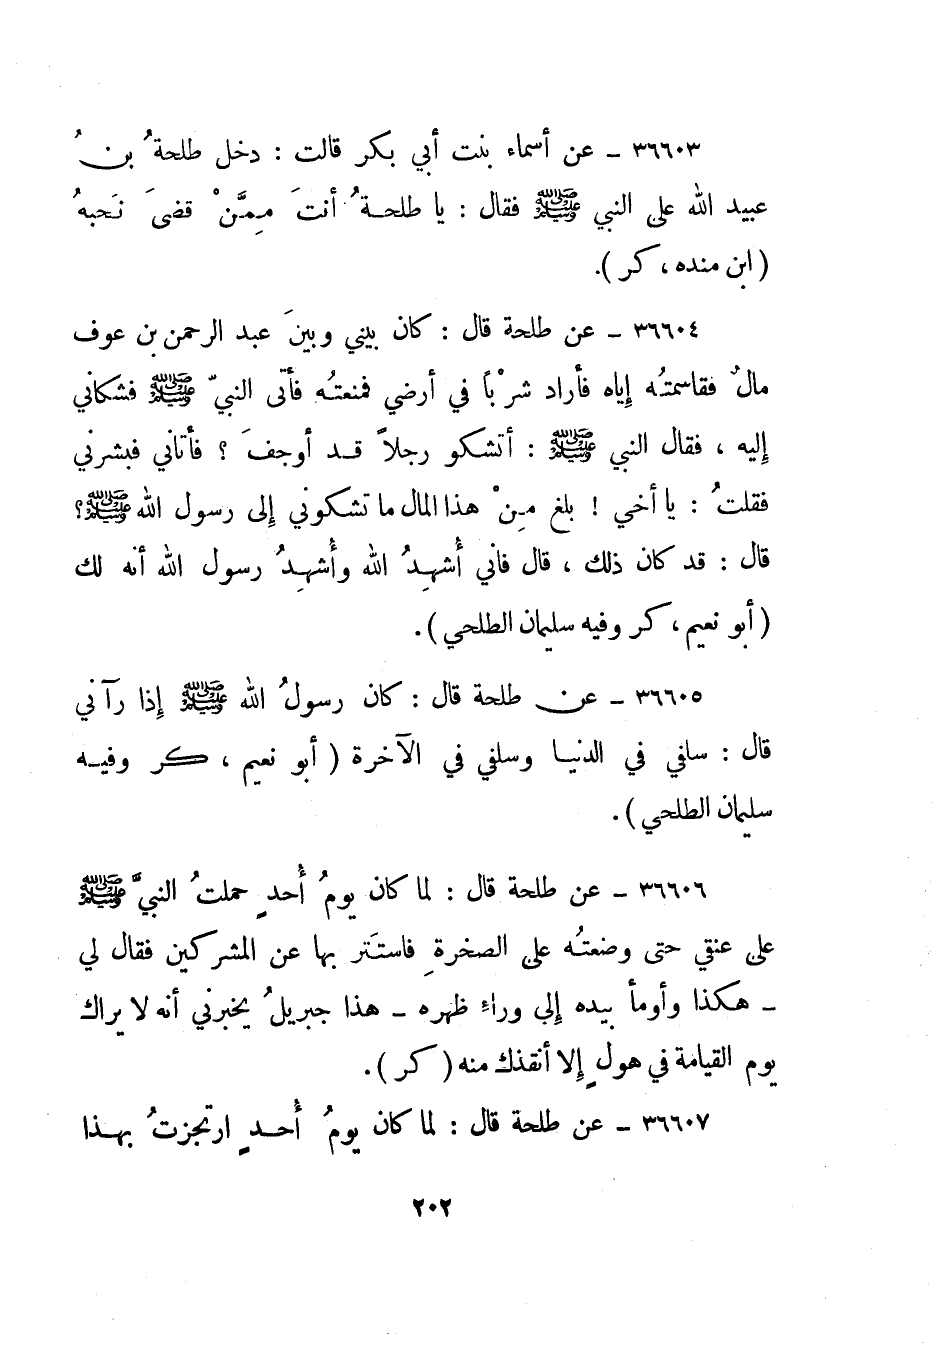 ٣٦٦٠٣ ـ عن أسماء بنت أبي بكر قالت : دخل طلحةُ بنُ
عبيد الله على النبي ﷺ فقال : يا طلحةُ أنتَ مِمَّنْ قضىَ نَحبهُ
( ابن منده ، كر ).
٣٦٦٠٤ ـ عن طلحة قال : كان بيني وبينَ عبد الرحمن بن عوف
مالٌ فقاسمتُه إياه فأراد شرْباً في أرضي فمنعتُه فأتى النبيّ ﷺ فشكاني
إليه ، فقال النبي ﷺ : أتشكو رجلاً قد أوجفَ ؟ فأتاني فبشرني
فقلتُ : يا أخي ! بلغ مِنْ هذا المال ما تشكوني إلى رسول الله ﷺ ؟
قال : قد كان ذلك ، قال فاني أُشهِدُ الله وأُشهِدُ رسول الله أنه لك
( أبو نعيم ، كر وفيه سليمان الطلحي ) .
٣٦٦٠٥ ـ عن طلحة قال : كان رسولُ الله ﷺ إذا رآني
قال : سلفي في الدنيا وسلفي في الآخرة ( أبو نعيم ، كر وفيه
سليمان الطلحي ) .
٣٦٦٠٦ ـ عن طلحة قال : لما كان يومُ أُحدٍ حملتُ النبيَّ ﷺ
على عنقي حتى وضعتُه على الصخرةِ فاستَتر بها عن المشركين فقال لي
ـ هكذا وأومأ بيده إلى وراءِ ظهره ـ هذا جبريلُ يخبرني أنه لا يراك
يوم القيامة في هولٍ إلا أنقذك منه ( كر ) .
٣٦٦٠٧ ـ عن طلحة قال : لما كان يومُ أُحدٍ ارتجزتُ بهذا
٢٠٢